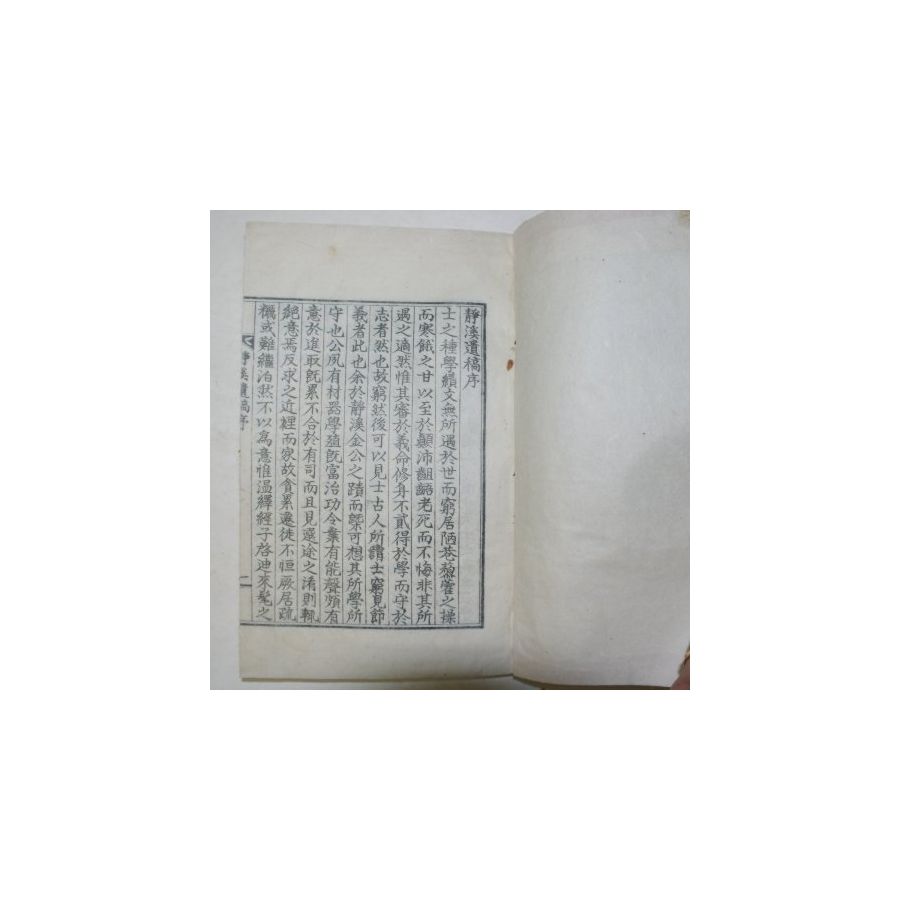 靜溪遺稿序
士之種學績文無所遇於世而窮居陋巷藜藿之操
而寒餓之甘以至於顚沛齟齬老死而不悔非其所
遇之適然惟其審於義命修身不貳得於學而守於
志者然也故窮然後可以見士古人所謂士窮見節
義者此也余於靜溪金公之蹟而槩可想其所學所
守也公夙有材器學殖旣富治功令業有能聲頗有
意於進取旣累不合於有司而且見選途之淆則輒
絕意焉反求之近裡而家故貪累遷徙不恒厥居疏
櫼或難繼泊然不以爲意惟溫繹經子啓迪來髦之
靜溪遺稿序
一